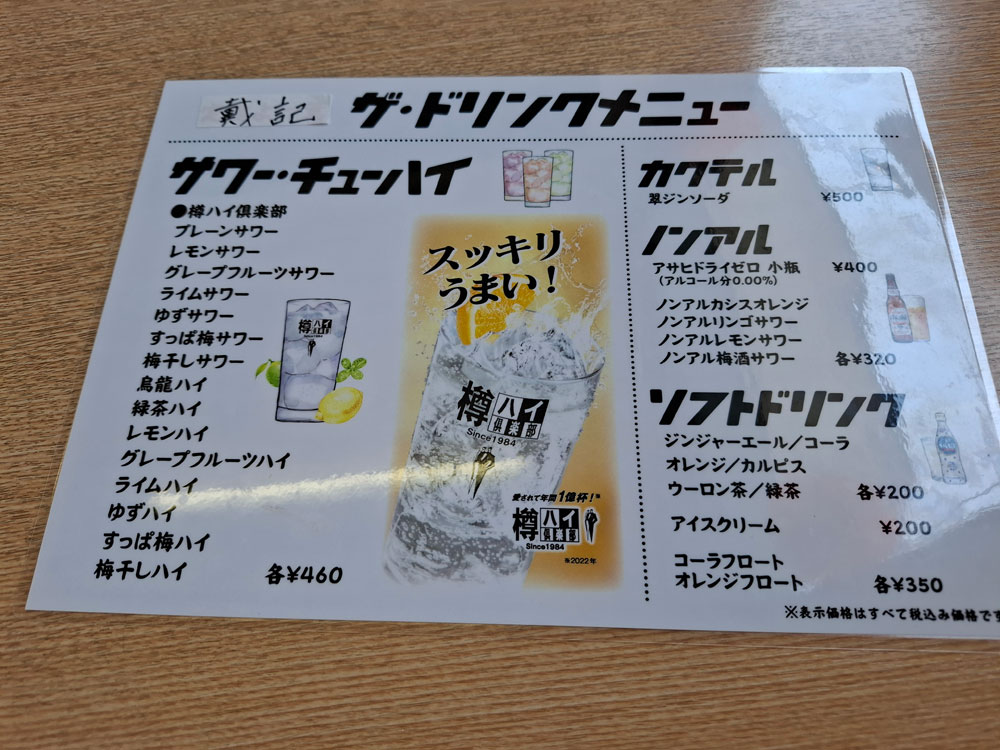 戴記 ザ・ドリンクメニュー
サワー・チューハイ
●樽ハイ倶楽部
プレーンサワー
レモンサワー
グレープフルーツサワー
ライムサワー
ゆずサワー
すっぱ梅サワー
梅干しサワー
烏龍ハイ
緑茶ハイ
レモンハイ
グレープフルーツハイ
ライムハイ
ゆずハイ
すっぱ梅ハイ
梅干しハイ 各¥460
樽ハイ
倶楽部
スッキリ
うまい!
樽ハイ
倶楽部
Since1984
愛されて年間1億杯!※
樽ハイ
倶楽部
Since1984
※2022年
カクテル
翠ジンソーダ ¥500
ノンアル
アサヒドライゼロ 小瓶 ¥400
(アルコール分0.00%)
ノンアルカシスオレンジ
ノンアルリンゴサワー
ノンアルレモンサワー
ノンアル梅酒サワー 各¥320
ソフトドリンク
ジンジャーエール/コーラ
オレンジ/カルピス
ウーロン茶/緑茶 各¥200
アイスクリーム ¥200
コーラフロート
オレンジフロート 各¥350
※表示価格はすべて税込み価格です